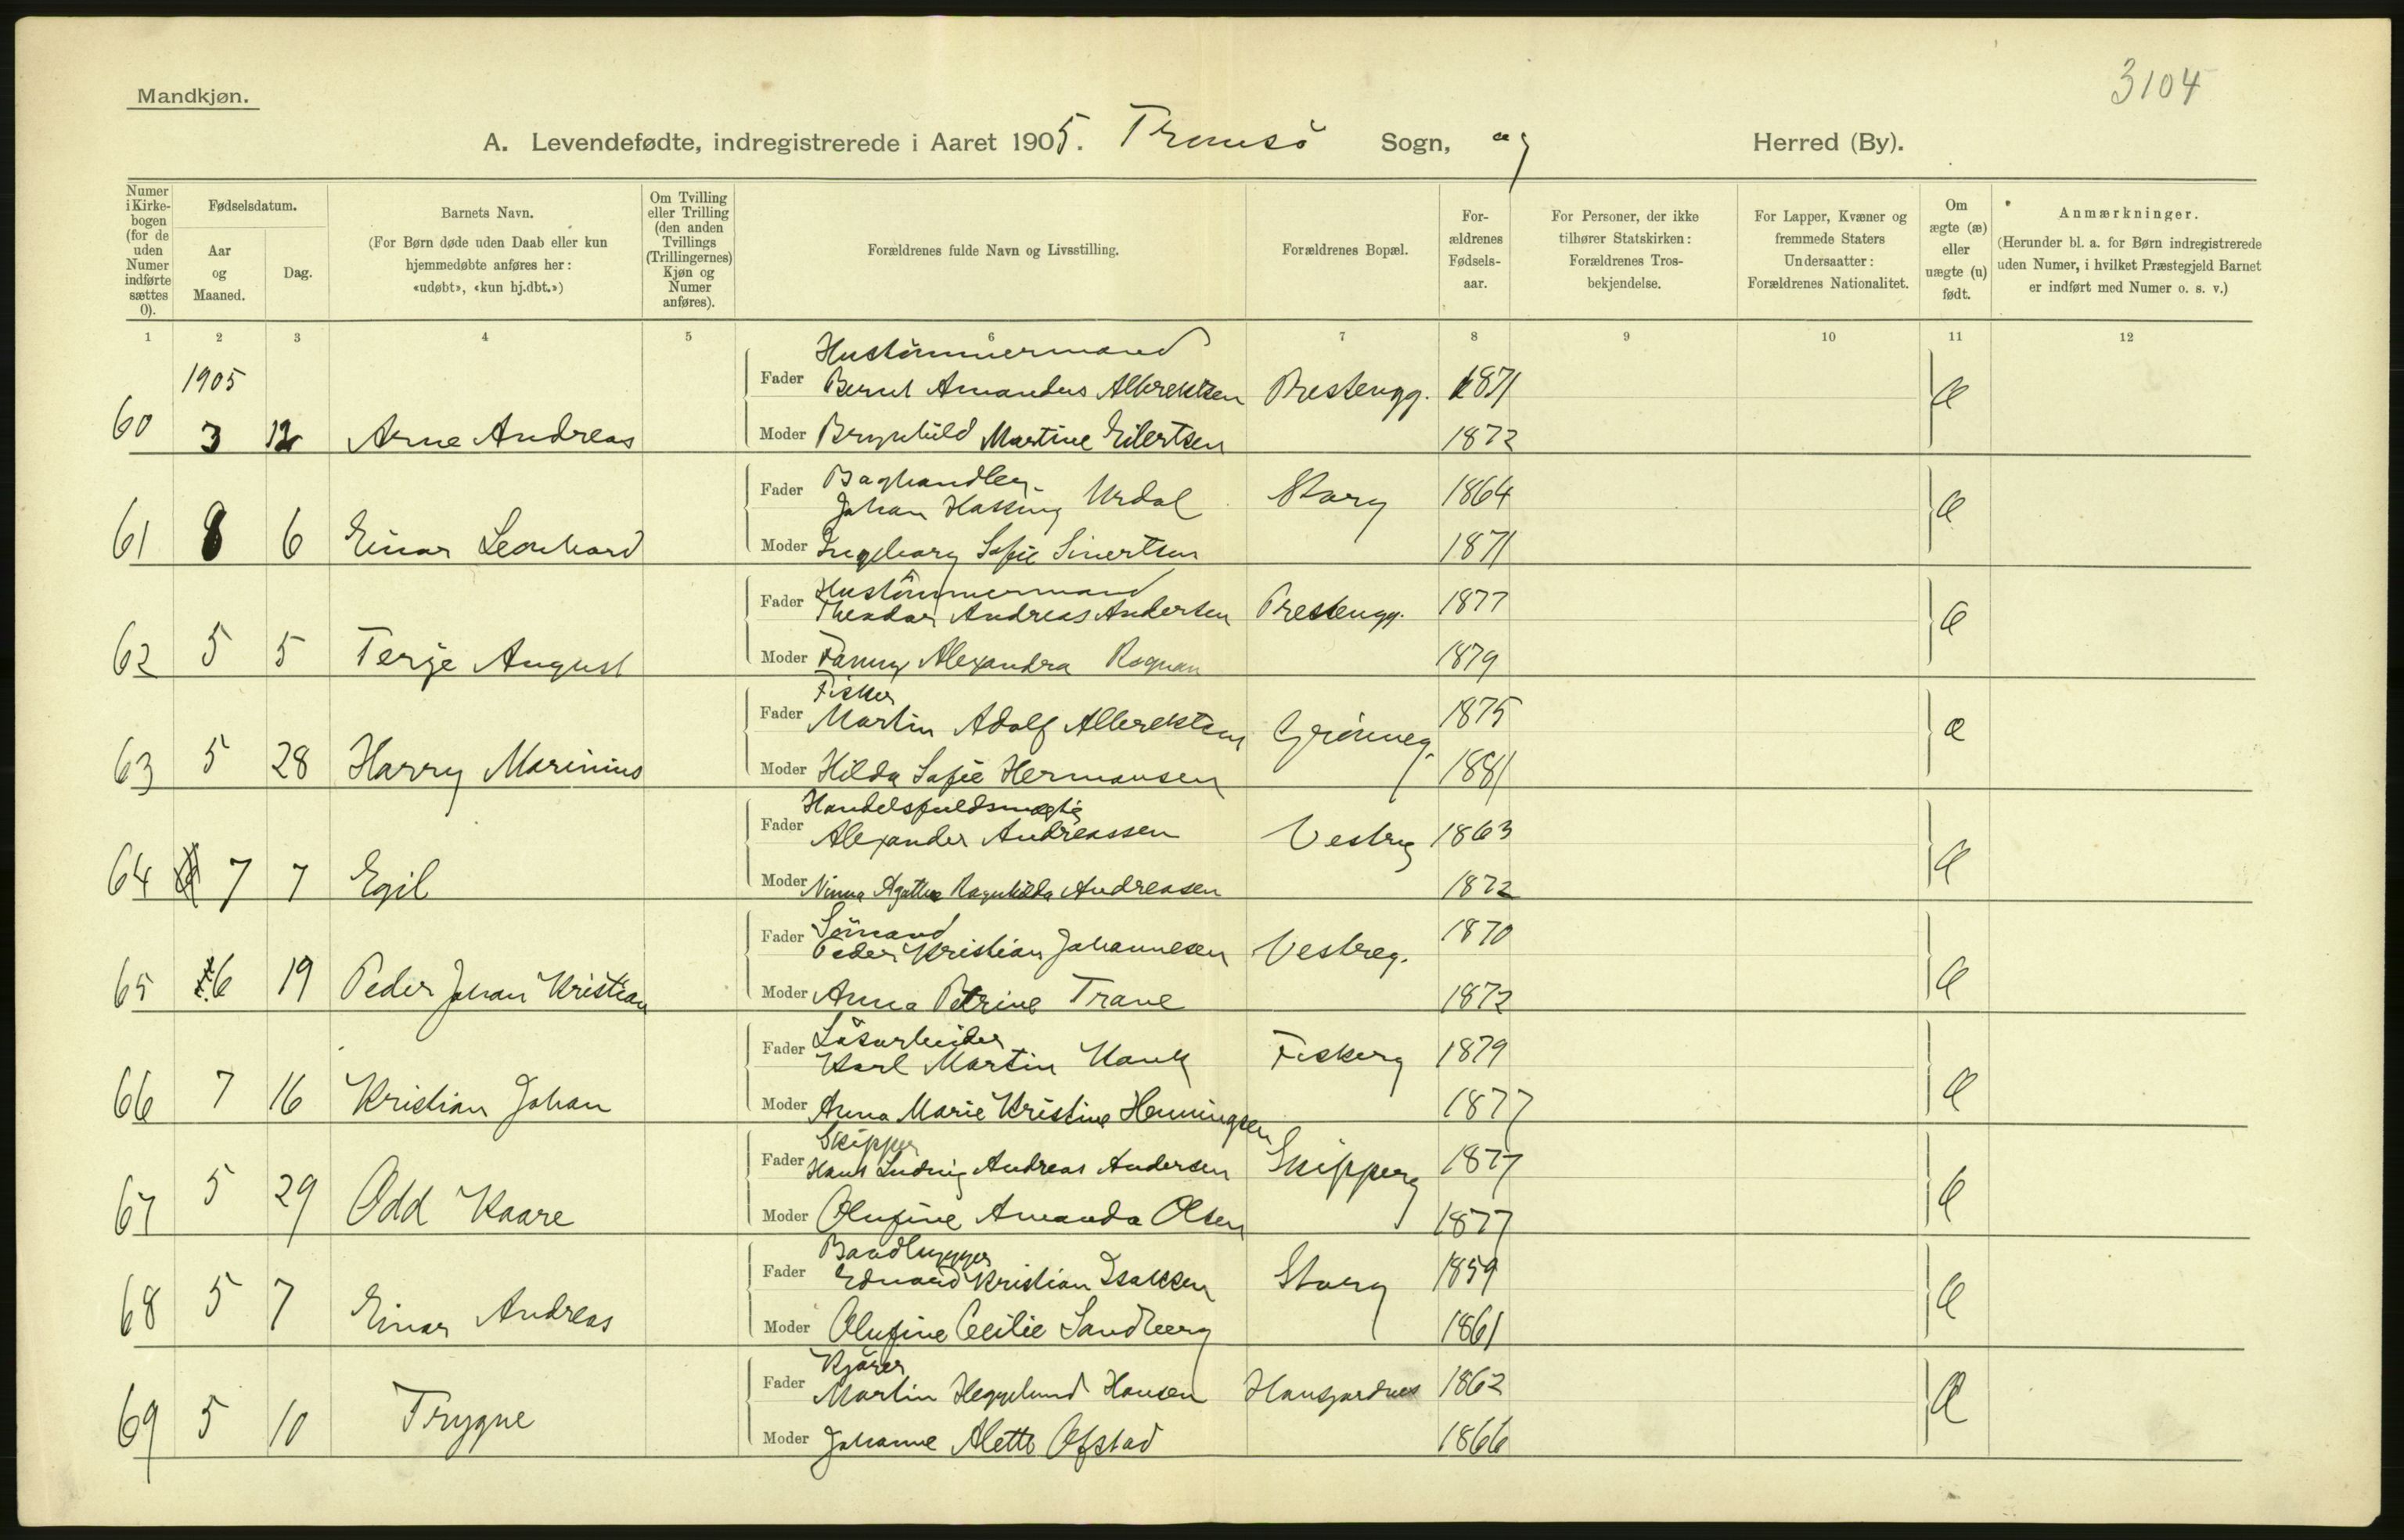 3104
Mandkjøn.
A. Levendefødte, indregistrerede i Aaret 1905. Tromsö Sogn, og Herred (By).
Numer i Kirkebogen (for de uden Numer indførte sættes 0).
Fødselsdatum.
Aar og Maaned.
Dag.
Barnets Navn.
(For Børn døde uden Daab eller kun hjemmedøbte anføres her: «udøbt», «kun hj.dbt.»)
Om Tvilling eller Trilling (den anden Tvillings (Trillingernes) Kjøn og Numer anføres).
Forældrenes fulde Navn og Livsstilling.
Forældrenes Bopæl.
For-ældrenes Fødsels-aar.
For Personer, der ikke tilhører Statskirken: Forældrenes Tros-bekjendelse.
For Lapper, Kvæner og fremmede Staters Undersaatter: Forældrenes Nationalitet.
Om ægte (æ) eller uægte (u) født.
Anmærkninger.
(Herunder bl. a. for Børn indregistrerede uden Numer, i hvilket Præstegjeld Barnet er indført med Numer o. s. v.)
1 2 3 4 5 6 7 8 9 10 11 12
1905
Hustömmermand
Fader Bernt Amandus Albrektsen Prestengg. 1871 Æ
60 3 12 Arne Andreas Moder Brynhild Martine Eilertsen 1872
Baghandler
Fader Johan Hassing Urdal Storg 1864 Æ
61 8 6 Einar Leonhard Moder Ingeborg Sofie Sivertsen 1871
Hustömmermand
Fader Theodor Andreas Andersen Prestengg. 1877 Æ
62 5 5 Terje August Moder Fanny Alexandra Rognan 1879
Fisker
Fader Martin Adolf Albrektsen Grönneg. 1875 Æ
63 5 28 Harry Marinius Moder Hilda Sofie Hermansen 1881
Handelsfuldmægtig
Fader Alexander Andreassen Vestreg 1863 Æ
64 7 7 Egil Moder Agathe Ragnhilda Andreasen 1872
Sömand
Fader Peder Kristian Johannesen Vestreg. 1870 Æ
65 6 19 Peder Johan Kristian Moder Anna Petrine Trane 1872
Lösarbeider
Fader Karl Martin Hauk Fiskerg 1879 Æ
66 7 16 Kristian Johan Moder Anna Marie Kristine Henningsen 1877
Skipper
Fader Hans Ludvig Andreas Andersen Skipperg 1877 Æ
67 5 29 Odd Kaare Moder Olufine Amanda Olsen 1877
Baadbygger
Fader Edvard Kristian Isaksen Storg 1859 Æ
68 5 7 Einar Andreas Moder Olufine Cecilie Sandberg 1861
Kjörer
Fader Martin Heggelund Hansen Hansjordnes 1862 Æ
69 5 10 Trygve Moder Johanne Alette Ofstad 1866